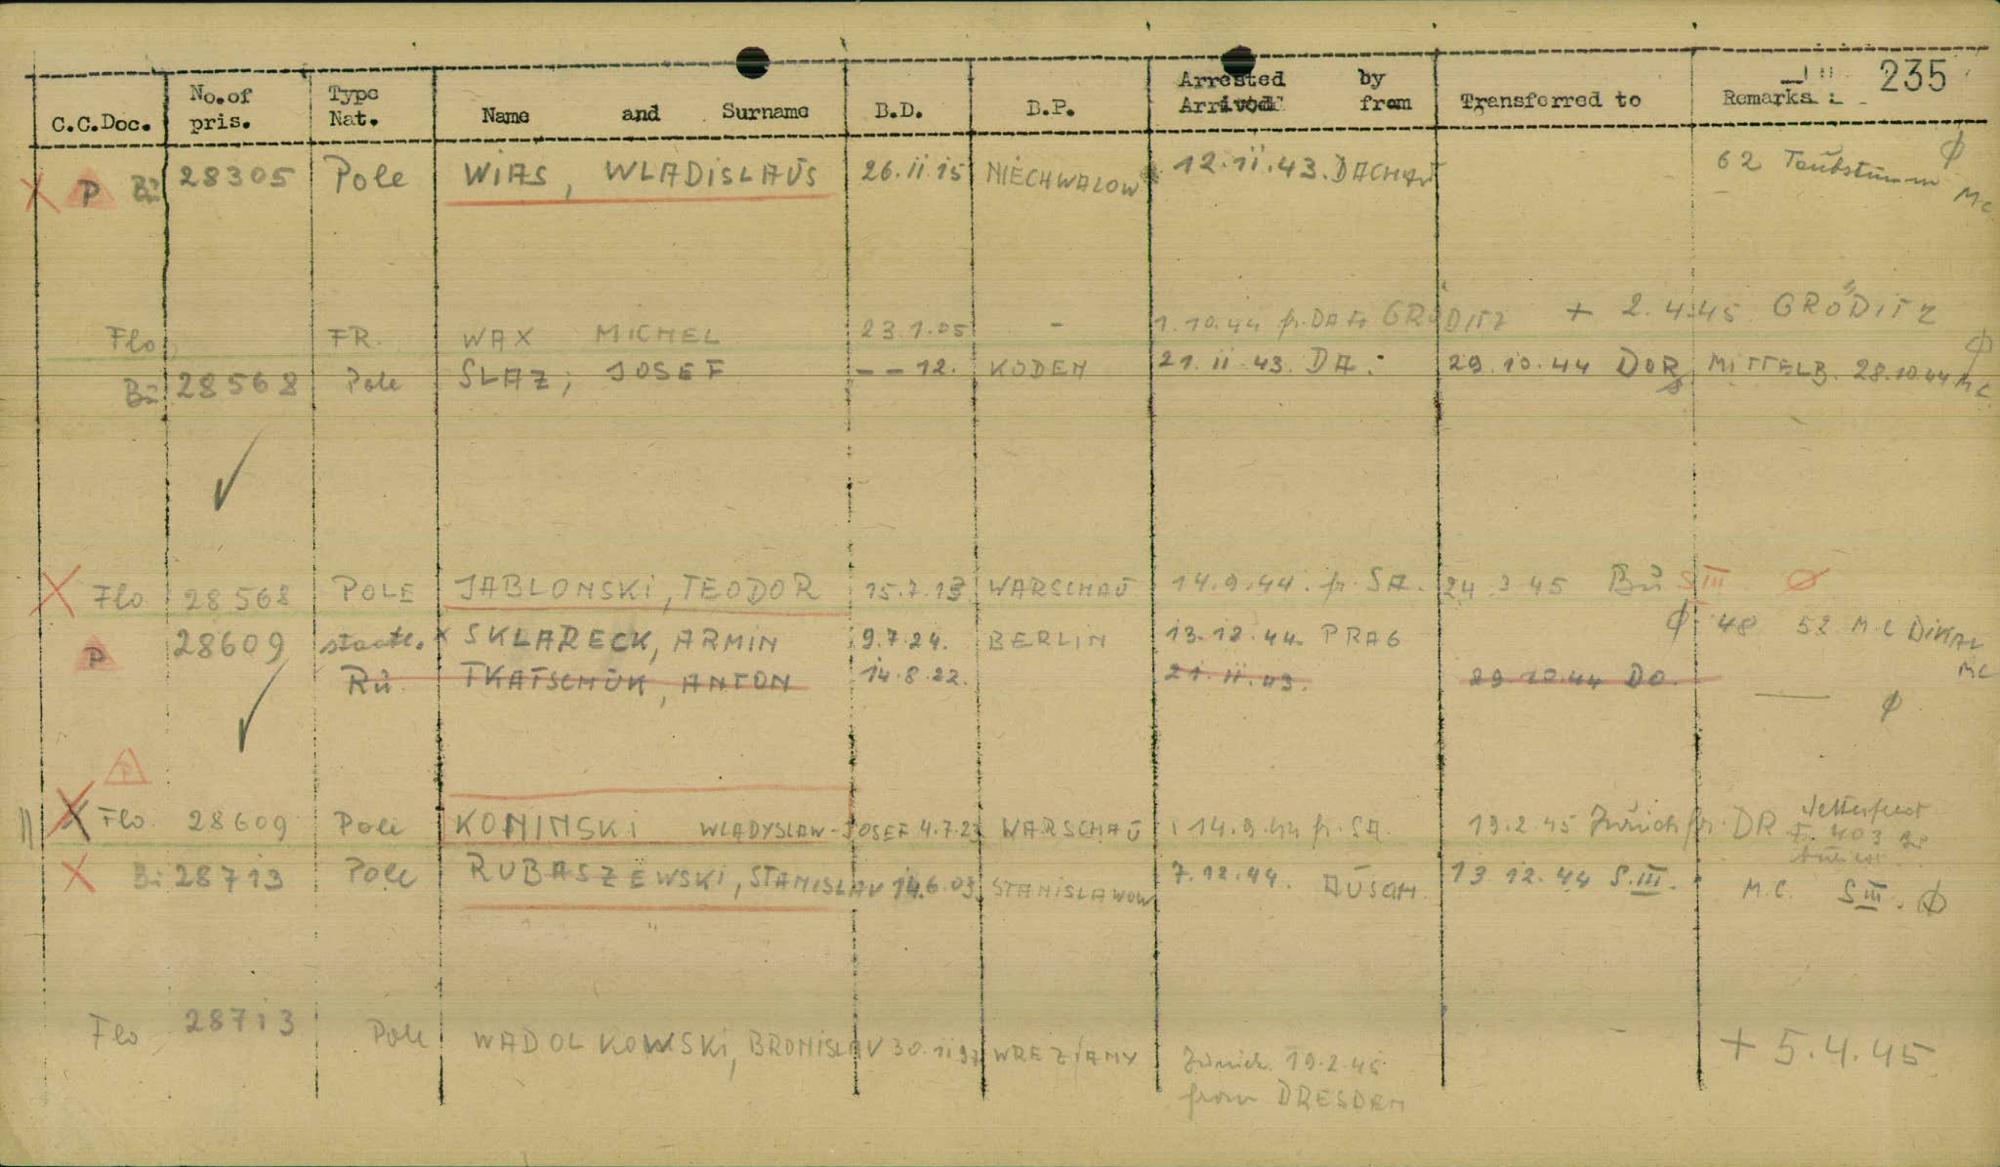 235
C.C.Doc. No.of pris. Type Nat. Name and Surname B.D. B.P. Arrested by Arrived from Transferred to Remarks
P Bü 28305 Pole WIAS, WLADISLAUS 26.11.15 NIECHWALOW 12.11.43. DACHAU 62 Taubstumm MC
Flo FR. WAX MICHEL 23.1.05 - 1.10.44 fr. DA GRÖDITZ + 2.4.45 GRÖDITZ
Bü 28568 Pole SLAZ, JOSEF - - 12. KODEN 21.11.43. DA. 29.10.44 DOR MITTELB. 28.10.44 MC
Flo 28568 POLE JABLONSKI, TEODOR 15.7.13 WARSCHAU 14.9.44. fr. SA. 24.3.45 Bu SIII Ø
P 28609 staatl. x SKLARECK, ARMIN 9.7.24. BERLIN 13.12.44. PRAG Ø 48 52 M.C
Rü TKATSCHUK, ANTON 14.8.22. 21.11.43. 29.10.44 DO. MC
Ø
P
Flo 28609 Pole KONINSKI WLADYSLAW-JOSEF 4.7.23 WARSCHAU 14.9.44 fr. SA. 19.2.45 Zurück fr. DR
Bü 28713 Pole RUBASZEWSKI, STANISLAV 14.6.03. STANISLAWOW 7.12.44. AUSCH. 13.12.44 S.III. M.C. SIII. Ø
Flo 28713 Pole WADOLKOWSKI, BRONISLAV 30.11.97 Zurück 19.2.45 + 5.4.45
from DRESDEN